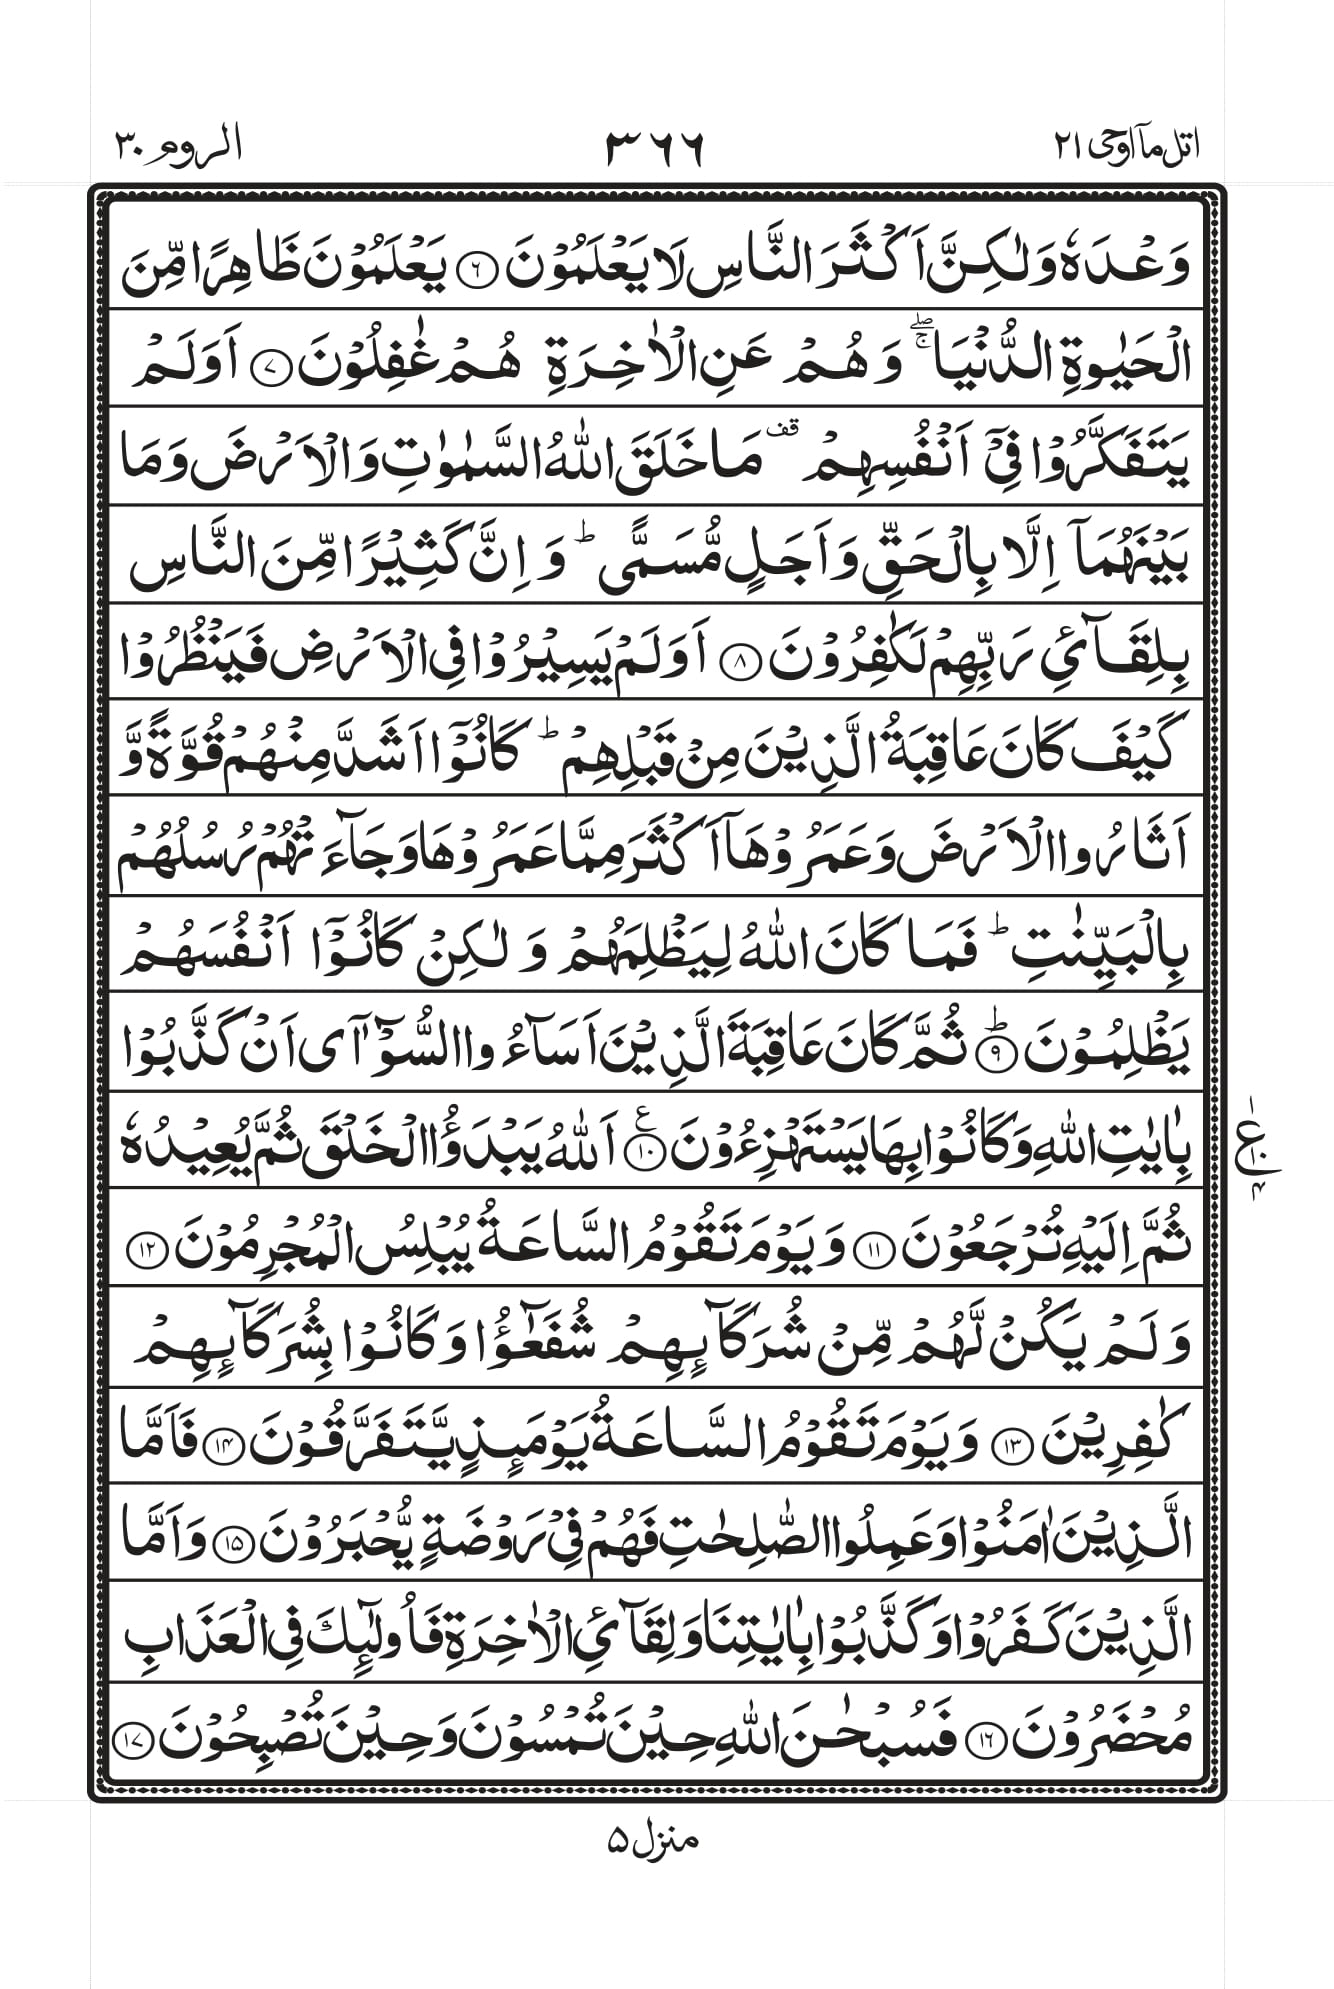 اتل مآ اوحی ۲۱ ۳۶۶ الروم ۳۰
وَعْدَهٗ وَلٰكِنَّ اَكْثَرَ النَّاسِ لَا يَعْلَمُوْنَ ۶ يَعْلَمُوْنَ ظَاهِرًا مِّنَ
الْحَيٰوةِ الدُّنْيَا ۖۚ وَهُمْ عَنِ الْاٰخِرَةِ هُمْ غٰفِلُوْنَ ۷ اَوَلَمْ
يَتَفَكَّرُوْا فِيْٓ اَنْفُسِهِمْ قف مَا خَلَقَ اللّٰهُ السَّمٰوٰتِ وَالْاَرْضَ وَمَا
بَيْنَهُمَآ اِلَّا بِالْحَقِّ وَاَجَلٍ مُّسَمًّى ؕ وَاِنَّ كَثِيْرًا مِّنَ النَّاسِ
بِلِقَآئِ رَبِّهِمْ لَكٰفِرُوْنَ ۸ اَوَلَمْ يَسِيْرُوْا فِي الْاَرْضِ فَيَنْظُرُوْا
كَيْفَ كَانَ عَاقِبَةُ الَّذِيْنَ مِنْ قَبْلِهِمْ ؕ كَانُوْٓا اَشَدَّ مِنْهُمْ قُوَّةً وَّ
اَثَارُوا الْاَرْضَ وَعَمَرُوْهَآ اَكْثَرَ مِمَّا عَمَرُوْهَا وَجَآءَتْهُمْ رُسُلُهُمْ
بِالْبَيِّنٰتِ ؕ فَمَا كَانَ اللّٰهُ لِيَظْلِمَهُمْ وَلٰكِنْ كَانُوْٓا اَنْفُسَهُمْ
يَظْلِمُوْنَ ؕ ۹ ثُمَّ كَانَ عَاقِبَةَ الَّذِيْنَ اَسَآءُوا السُّوْٓآٰى اَنْ كَذَّبُوْا
بِاٰيٰتِ اللّٰهِ وَكَانُوْا بِهَا يَسْتَهْزِءُوْنَ ع ۱۰ اَللّٰهُ يَبْدَؤُا الْخَلْقَ ثُمَّ يُعِيْدُهٗ
۱ ع ۱۰ ۴
ثُمَّ اِلَيْهِ تُرْجَعُوْنَ ۱۱ وَيَوْمَ تَقُوْمُ السَّاعَةُ يُبْلِسُ الْمُجْرِمُوْنَ ۱۲
وَلَمْ يَكُنْ لَّهُمْ مِّنْ شُرَكَآئِهِمْ شُفَعٰٓؤُا وَكَانُوْا بِشُرَكَآئِهِمْ
كٰفِرِيْنَ ۱۳ وَيَوْمَ تَقُوْمُ السَّاعَةُ يَوْمَئِذٍ يَّتَفَرَّقُوْنَ ۱۴ فَاَمَّا
الَّذِيْنَ اٰمَنُوْا وَعَمِلُوا الصّٰلِحٰتِ فَهُمْ فِيْ رَوْضَةٍ يُّحْبَرُوْنَ ۱۵ وَاَمَّا
الَّذِيْنَ كَفَرُوْا وَكَذَّبُوْا بِاٰيٰتِنَا وَلِقَآئِ الْاٰخِرَةِ فَاُولٰٓئِكَ فِي الْعَذَابِ
مُحْضَرُوْنَ ۱۶ فَسُبْحٰنَ اللّٰهِ حِيْنَ تُمْسُوْنَ وَحِيْنَ تُصْبِحُوْنَ ۱۷
منزل ۵